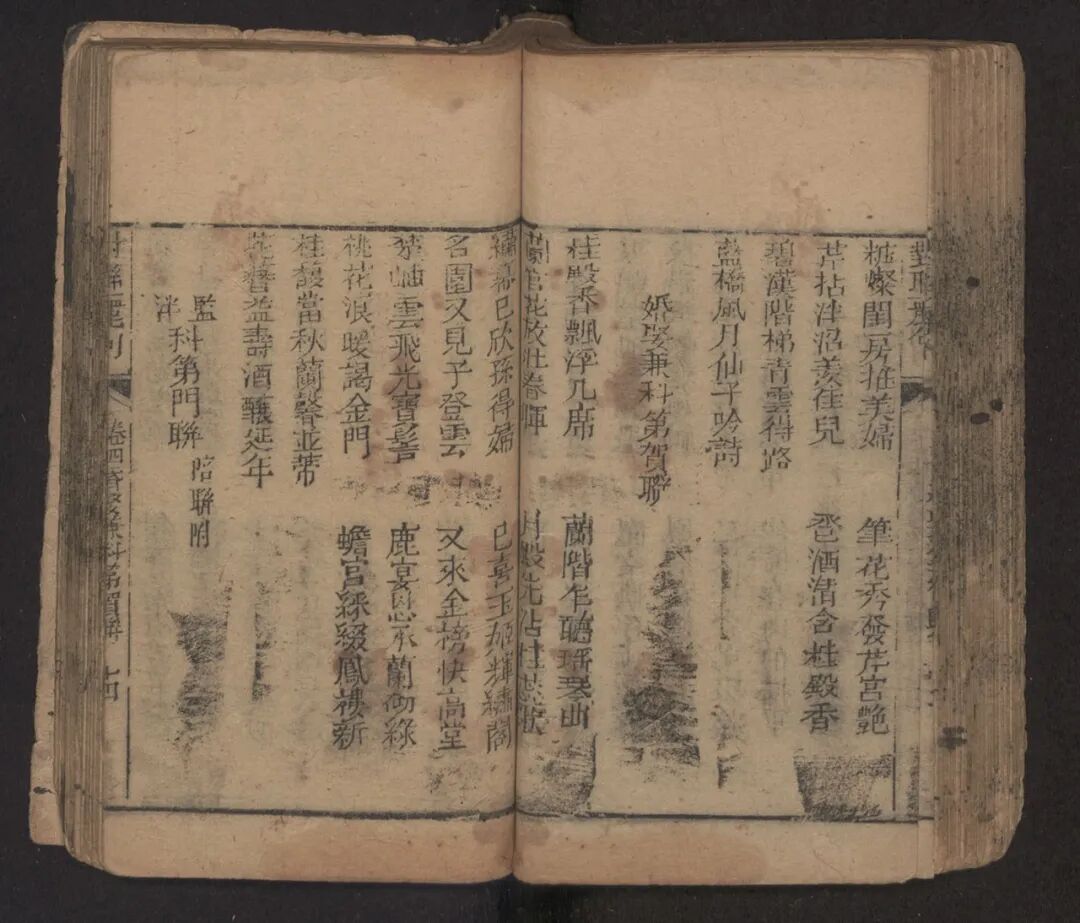 粧燦閨房推美婦 筆花秀發芹宮艷
芹拈泮沼羨佳兒 卺酒清含桂殿香
碧漢階梯青雲得路
藍橋風月仙子吟詩
婚娶兼科第賀聯
桂殿香飄浮几席 蘭階乍聽瑤琴曲
花放壯春暉 月殿先沾桂蕊
繡幕已欣孫得婦 已喜玉姬輝繡閣
名園又見子登雲 又來金榜快高堂
岫雲飛光寶髻 鹿宴承蘭綠
桃花浪暖謁金門 蟾宮綵綴鳳褸新
桂馥當秋蘭馨並蒂
益壽酒釀延年
監泮科第門聯 陪聯附
卷四 科第賀聯